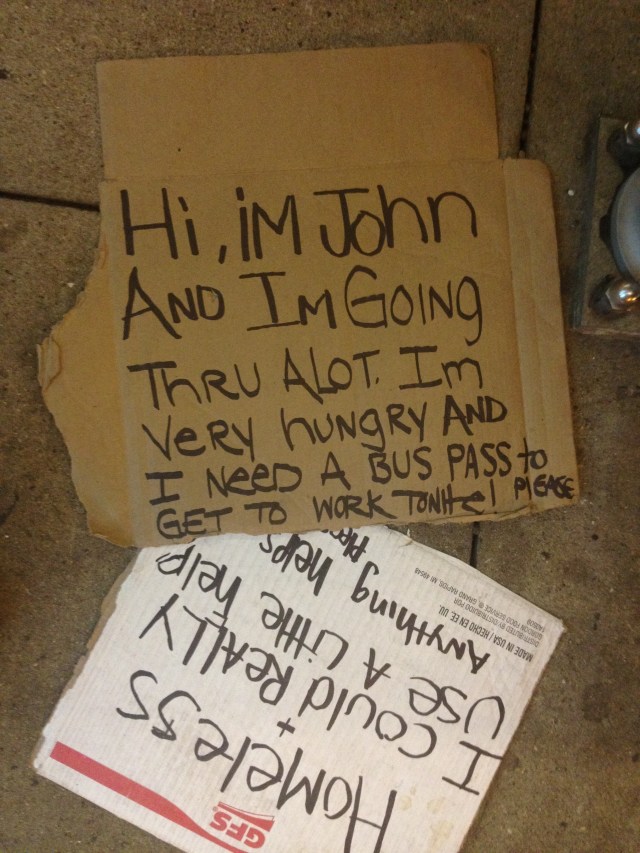 Hi, iM John
AND IM GOING
THRU ALOT. Im
VeRY huNgRY AND
I NeeD A BUS PASS to
GET TO WORK TONIte! PlEASE
Homeless
+
I Could ReALLY
USE A Little help
ANYthing helps
GFS
MADE IN USA / HECHO EN EE. UU.
DISTRIBUTED BY/DISTRIBUIDO POR:
GORDON FOOD SERVICE ®, GRAND RAPIDS, MI 49548